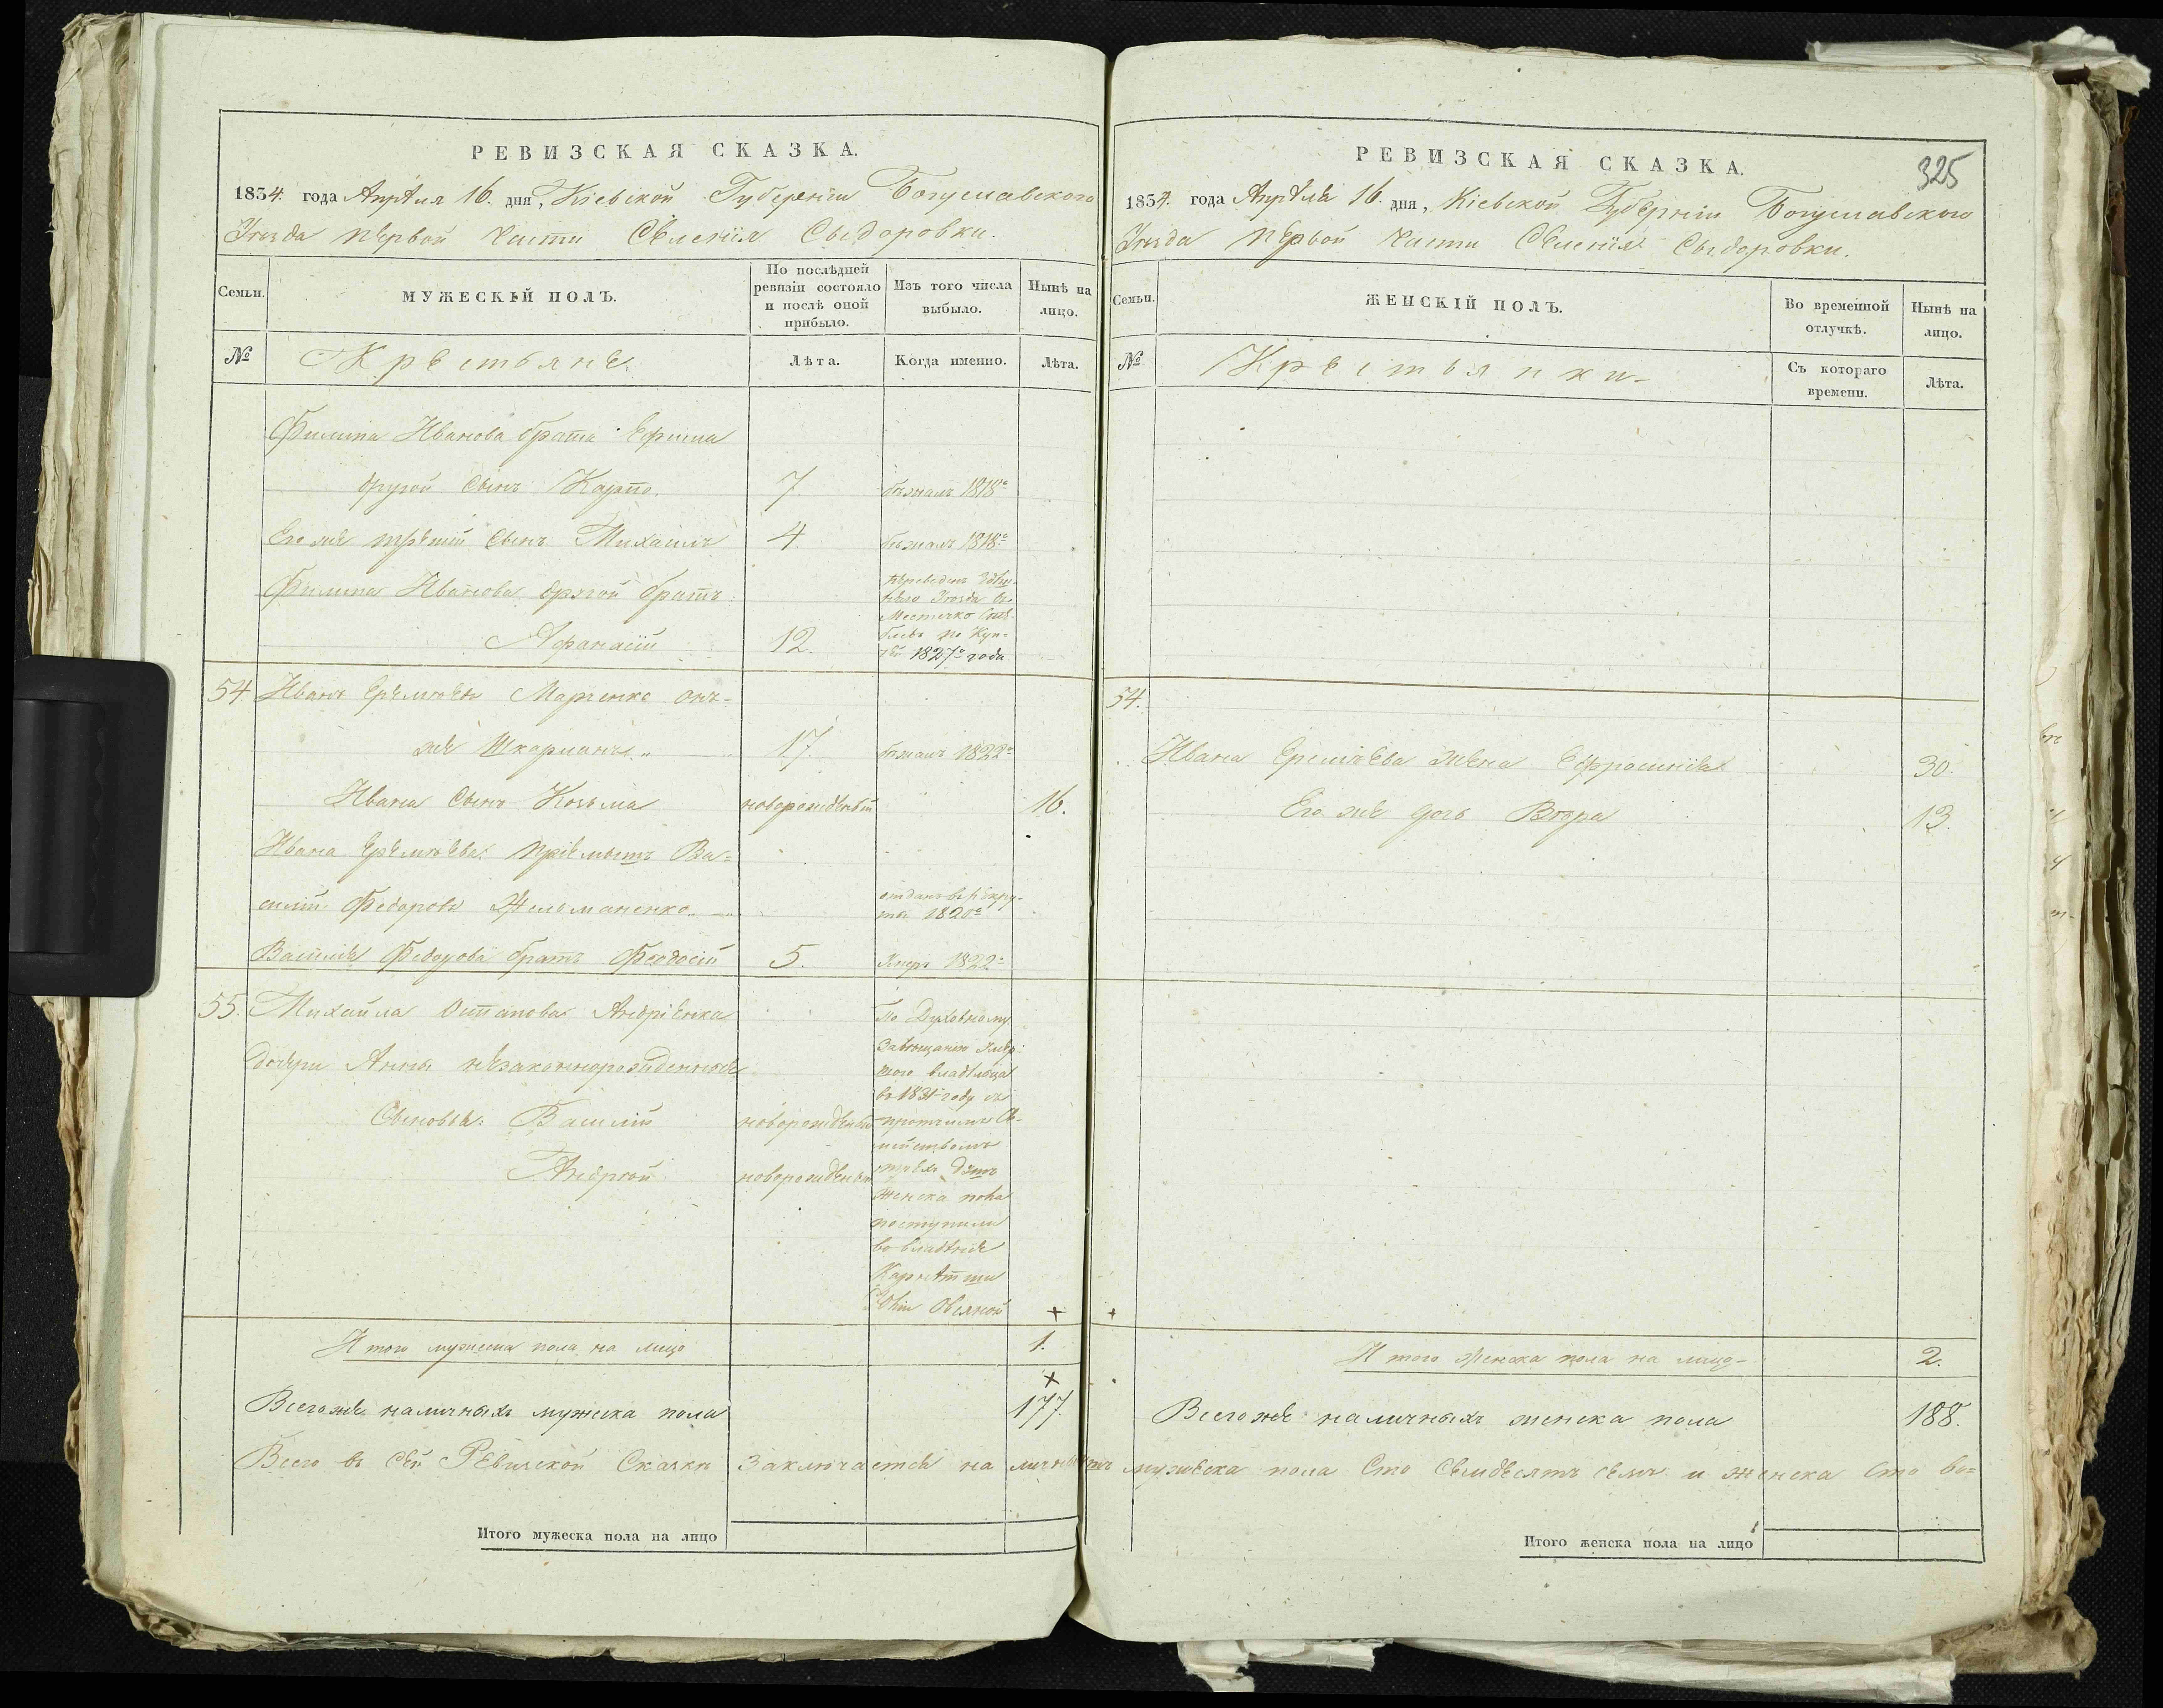 РЕВИЗСКАЯ СКАЗКА.
1834. года Апрѣля 16. дня, Кіевской Губерніи Богуславского
Уезда первой части Селенія Сыдоровки.
Семьи.
МУЖЕСКІЙ ПОЛЪ.
По послѣдней ревизіи состояло и послѣ оной прибыло.
Изъ того числа выбыло.
Нынѣ на лицо.
№
Крестьяне
Лѣта.
Когда именно.
Лѣта.
Филипа Иванова брата Ефима
другой Сынъ Карпо. 7. бежалъ 1818г
Его же третій Сынъ Михаилъ 4. бежалъ 1818г
Филипа Иванова другой братъ
Афанасій 12.
Уезда въ
Местечко
по
1827г года
54. Иванъ Еремеевъ Марченко онъ-
же Шкарпанъ 17. бежалъ 1822г
Ивана Сынъ Козьма новорожденый 16.
Ивана Еремеева пріемышъ Ва=
силій Федоровъ
отданъ в рекру-
ты 1820г
Василія Федорова братъ Феодосій 5. Умеръ 1822г
55. Михайла Остапова Андріенка
дочери Анны незаконнорожденные
Сыновья: Василій новорожденый
Андрей новорожденый
По Духовному
Завещанію умер-
шого владельца
въ 1831 году съ
протчимъ Се-
мействомъ
трехъ душъ
женска пола
поступили
во владеніе
Овсяной
Итого мужеска пола на лицо 1.
Всего же наличныхъ мужеска пола 177.
Всего въ сей Ревиской Скаски Заключается на личныхъ мужеска пола Сто Семдесятъ семъ и женска Сто во=
Итого мужеска пола на лицо
РЕВИЗСКАЯ СКАЗКА.
325
1834. года Апрѣля 16. дня, Кіевской Губерніи Богуславского
Уезда первой части Селенія Сыдоровки.
Семьи.
ЖЕНСКІЙ ПОЛЪ.
Во временной отлучкѣ.
Нынѣ на лицо.
№
Крестьянки
Съ котораго времени.
Лѣта.
54.
Ивана Еремеева жена Ефросинія 30.
Его же дочь Вера 13.
Итого женска пола на лицо 2.
Всего же наличныхъ женска пола 188.
Итого женска пола на лицо